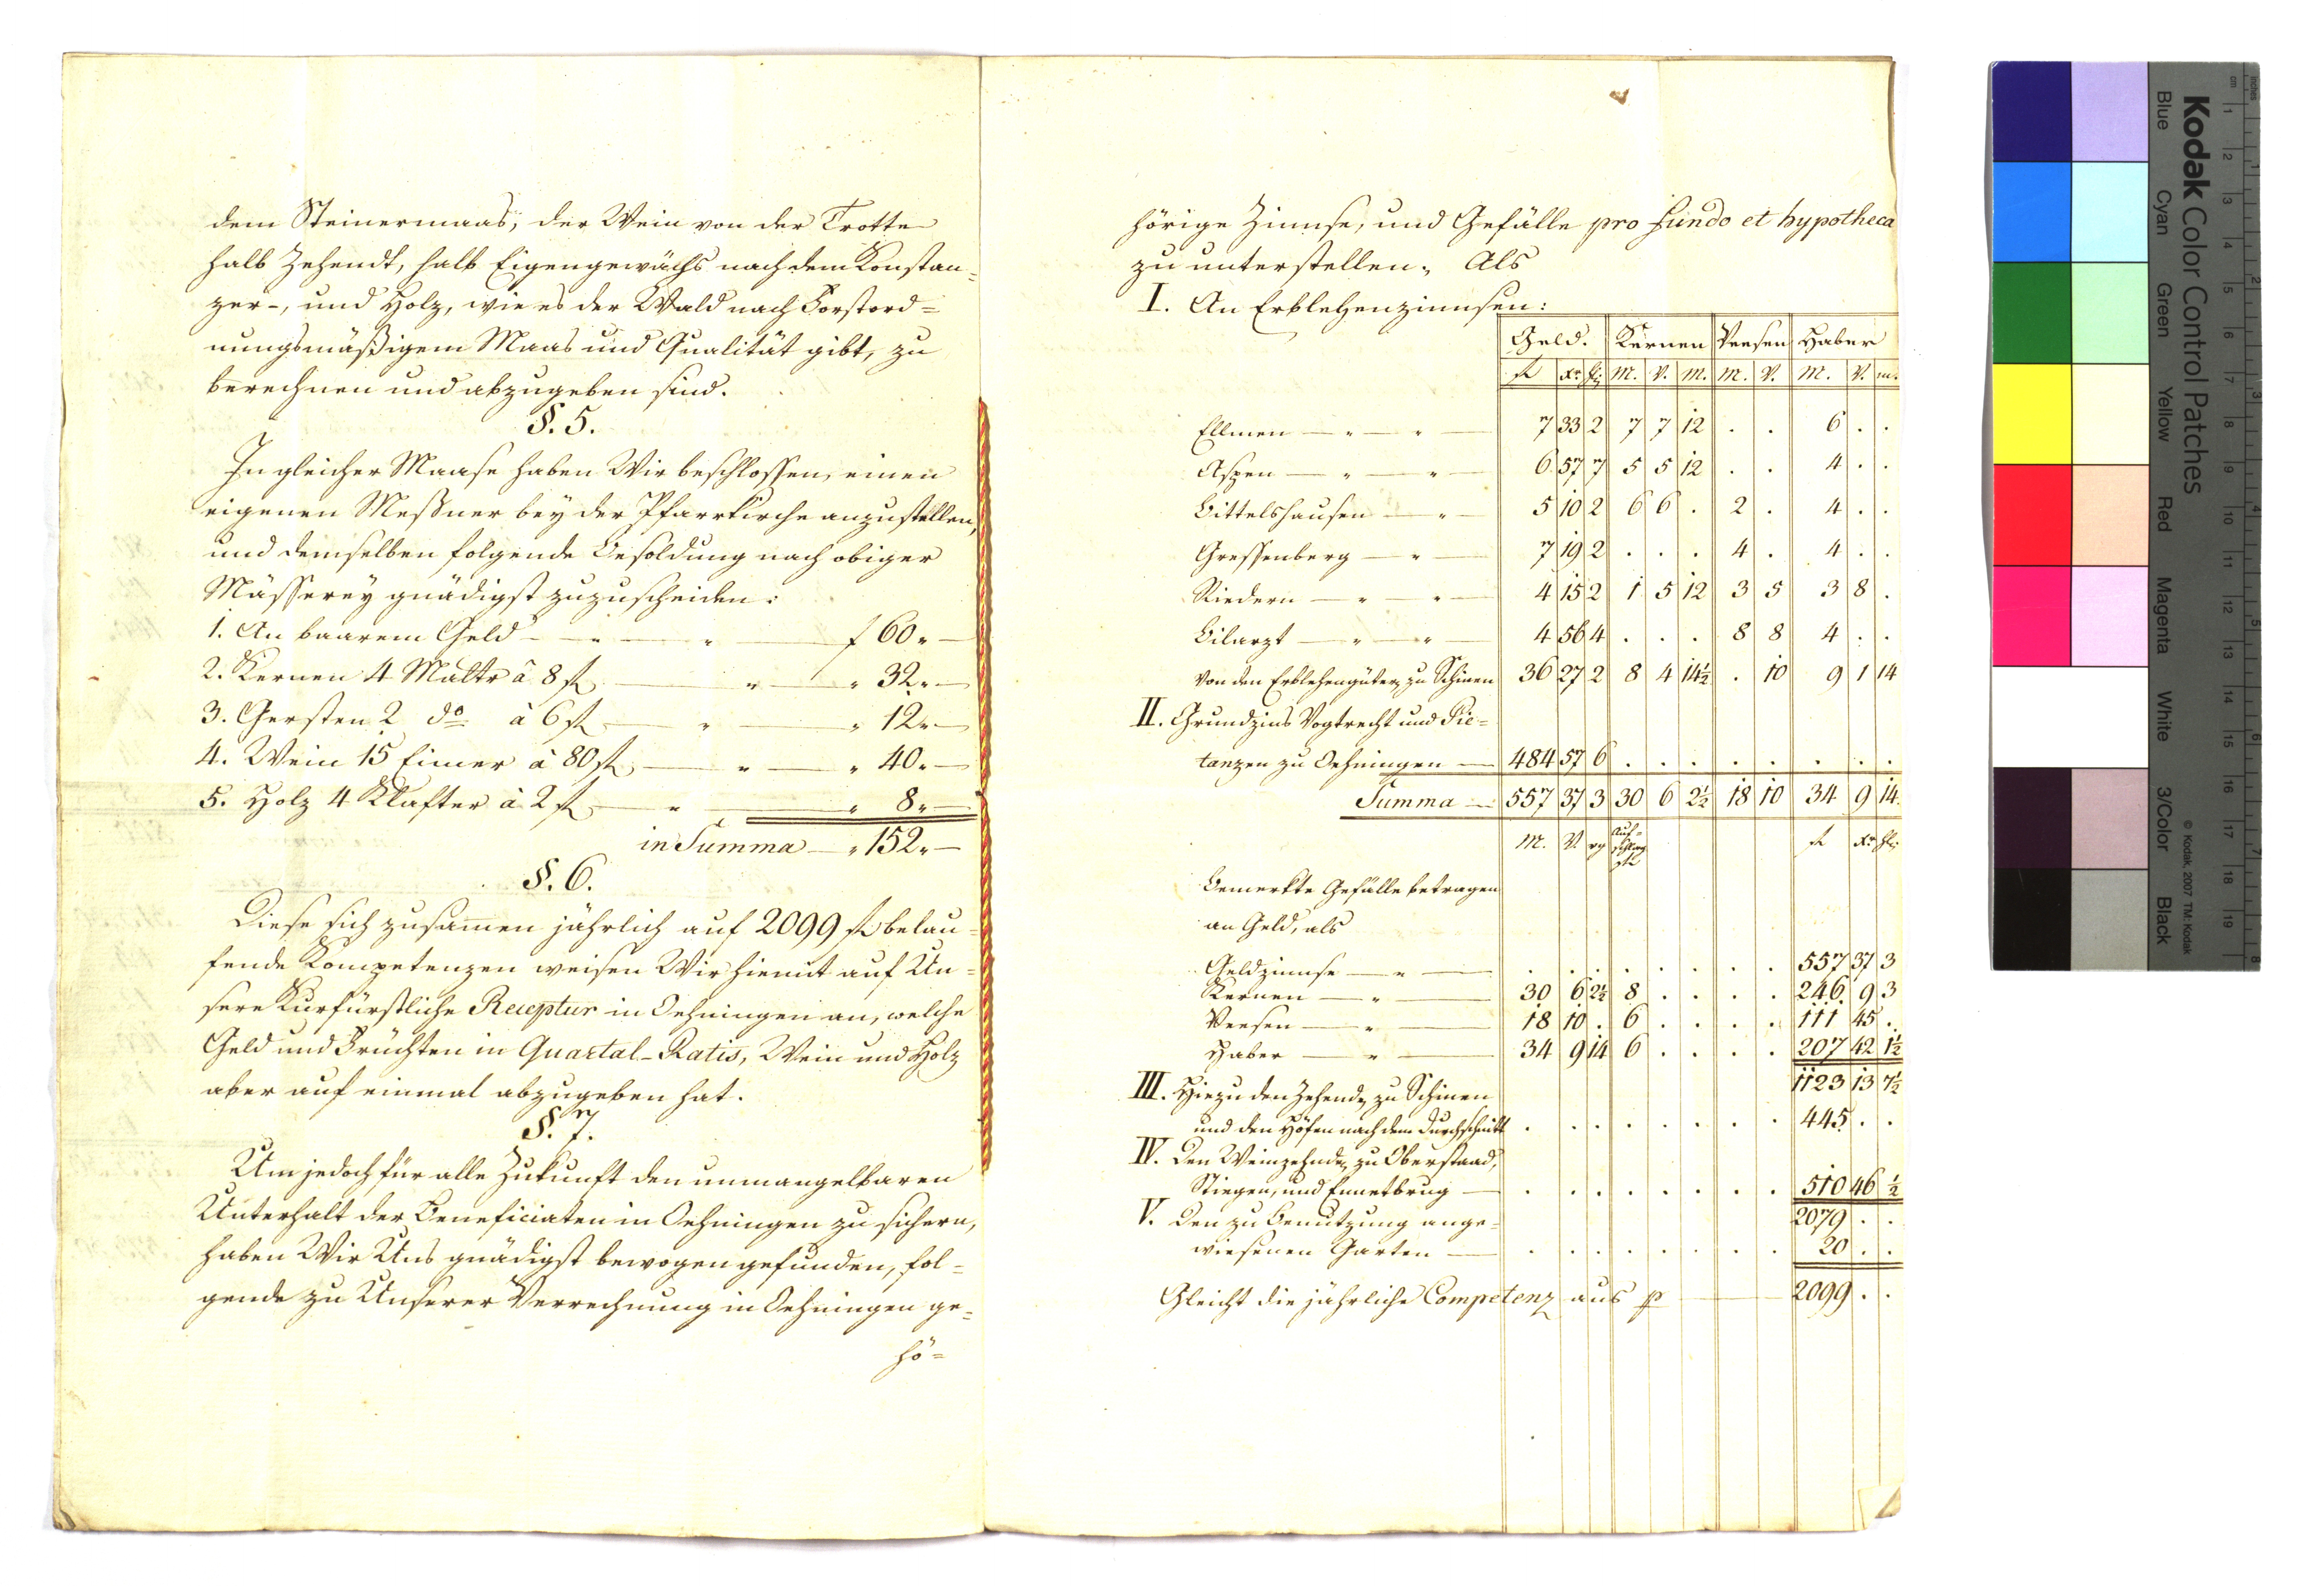 dem Steinermaas, der Wein von der Trotte
halb Zehendt, halb Eigengewächs nach dem Konstan-
zer-, und Holz, wie es der Wald nach Forstord-
nungsmäßigem Maas und Qualität gibt, zu
berechnen und abzugeben sind.
§. 5.
In gleicher Maase haben Wir beschlossen, einen
eigenen Meßner bey der Pfarrkirche anzustellen,
und demselben folgende Besoldung nach obiger
Mässerey gnädigst zuzuscheiden:
1. An baarem Geld — " — " — f 60 " —
2. Kernen 4 Maltr â 8 fl — " — " 32 " —
3. Gersten 2 do â 6 fl — " — " 12 " —
4. Wein 15 Eimer â 80 fl — " — " 40 " —
5. Holz 4 Klafter â 2 fl — " — " 8 " —
in Summa — " 152 " —
§. 6.
Diese sich zusamen jährlich auf 2099 fl belau-
fende Kompetenzen weisen Wir hiemit auf Un-
sere Kurfürstliche Receptur in Oehningen an, welche
Geld und Früchten in Quartal-Ratis, Wein und Holz
aber auf einmal abzugeben hat.
§. 7.
Um jedoch für alle Zukunft den unmangelbaren
Unterhalt der Beneficiaten in Oehningen zu sichern,
haben Wir Uns gnädigst bewogen gefunden, fol-
gende zu Unserer Verrechnung in Oehningen ge-
hö-
hörige Zinnse, und Gefälle pro fundo et hypotheca
zu unterstellen, Als
I. An Erblehenzinnsen:
Geld. Kernen Veesen Haber
fl Xr. M. V. M. M. V. M. V. m.
Ellmen — " — " — 7 33 2 7 7 12 . . 6 . .
Aspen — " — " — 6 57 7 5 5 12 . . 4 . .
Bittelshausen — " — 5 10 2 6 6 . 2 . 4 . .
Greffenberg — " — 7 19 2 . . . 4 . 4 . .
Riedern — " — " — 4 15 2 1 5 12 3 5 3 8 .
Bilarzt — " — " — 4 56 4 . . . 8 8 4 . .
von den Erblehengüter zu Schinen 36 27 2 8 4 14½ . 10 9 1 14
II. Grundzins Vogtrecht und Pie-
tanzen zu Oehningen — 484 57 6 . . . . . . . .
Summa — 557 37 3 30 6 2½ 18 10 34 9 14
M. V. fl Xr hl.
Bemerkte Gefälle betragen
an Geld, als
Geldzinnse — " — . . . . . . . . 557 37 3
Kernen — " — 30 6 2½ 8 . . . . 246 9 3
Veesen — " — 18 10 . 6 . . . . 111 45 .
Haber — " — 34 9 14 6 . . . . 207 42 1½
1123 13 7½
III. Hiezu den Zehend zu Schinen
und den Höfen nach dem Durchschnitt . . . . . . . . 445 . .
IV. Den Weinzehnde zu Oberstaad,
Stiegen, und Ennetbrug — . . . . . . . . 510 46 ½
2079 . .
V. Den zu Benutzung ange-
wiesenen Garten — . . . . . . . . 20 . .
Gleicht die jährliche Competenz aus p — 2099 . .
Kodak Color Control Patches
© Kodak, 2007 TM: Kodak
Blue Cyan Green Yellow Red Magenta White 3/Color Black
inches 1 2 3 4 5 6 7 8
cm 1 2 3 4 5 6 7 8 9 10 11 12 13 14 15 16 17 18 19